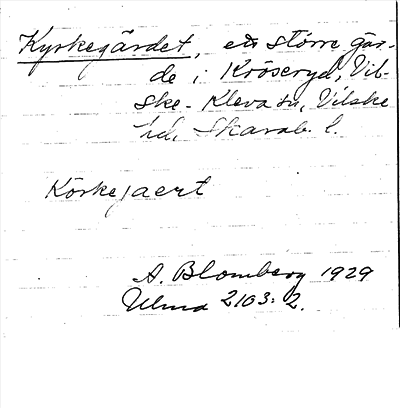 Kyrkegärdet, ett större gär-
de i Kröseryd, Vil-
ske-Kleva sn, Vilske
hd, Skarab. l.
Körkejaert
A. Blomberg 1929
Ulma 2103:2.